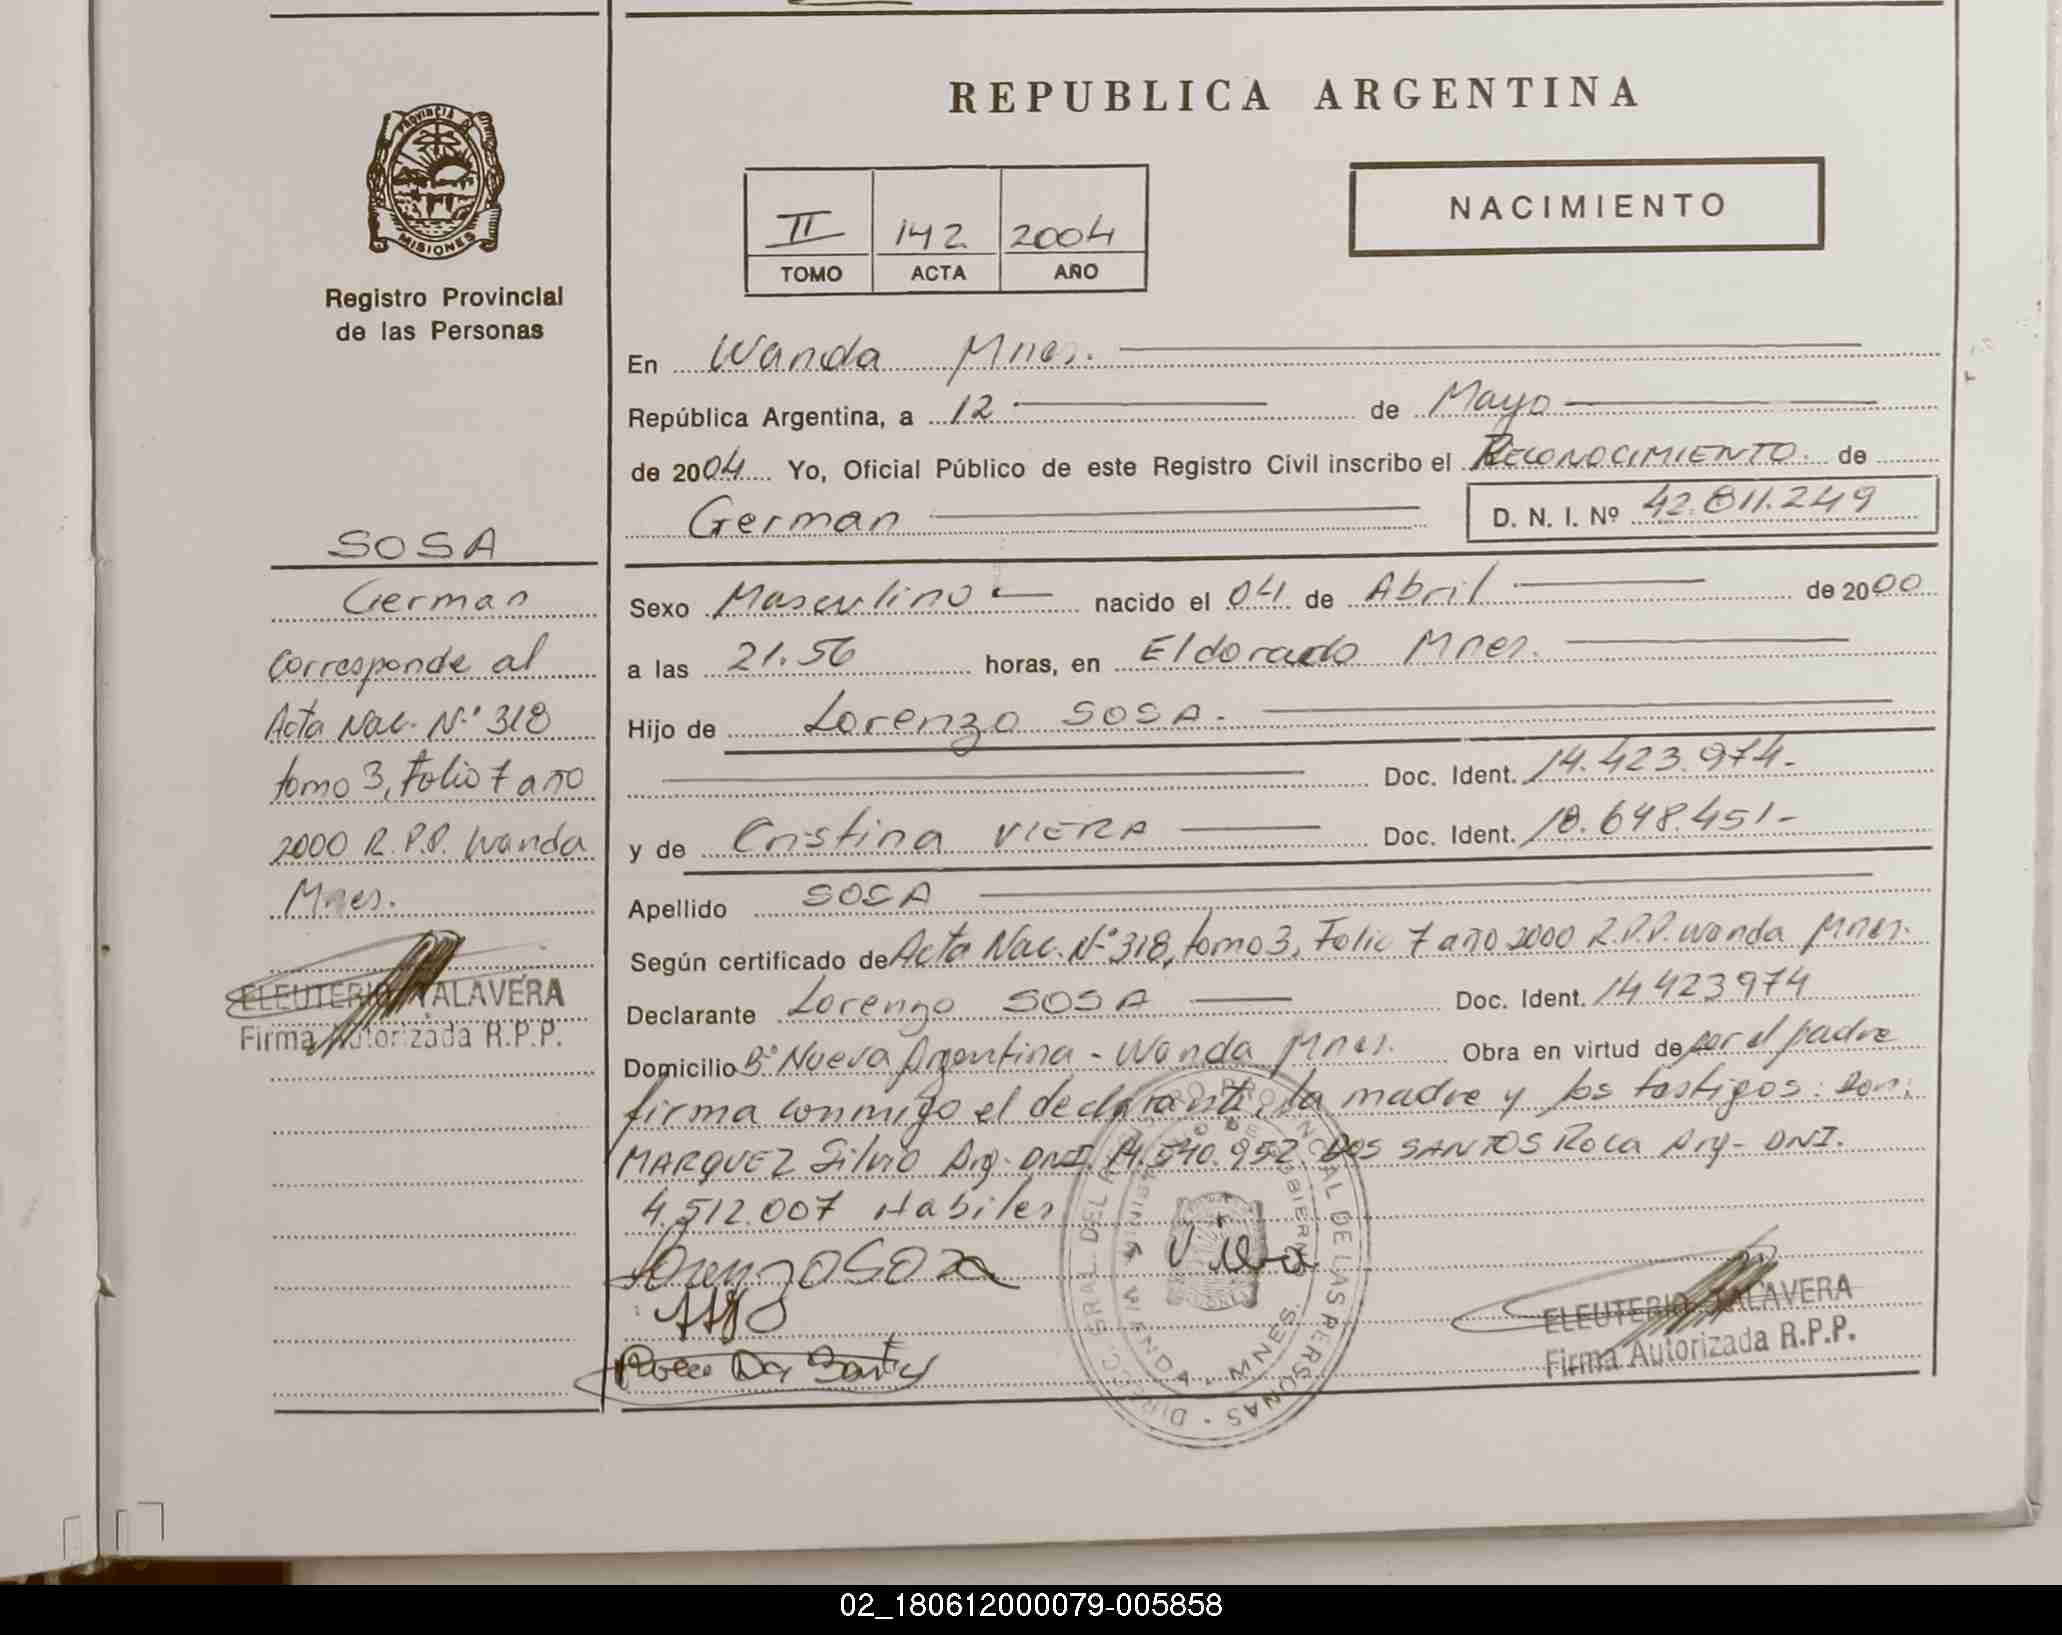 PROVINCIA DE
MISIONES
Registro Provincial
de las Personas
SOSA
German
Corresponde al
Acta Nac. Nº 318
tomo 3, Folio 7 año
2000 R.P.P. Wanda
Mnes.
ELEUTERIO TALAVERA
Firma Autorizada R.P.P.
REPUBLICA ARGENTINA
NACIMIENTO
II 142 2004
TOMO ACTA AÑO
En Wanda Mnes.
República Argentina, a 12 de Mayo
de 2004 Yo, Oficial Público de este Registro Civil inscribo el RECONOCIMIENTO. de
German D. N. I. Nº 42.811.249
Sexo Masculino nacido el 04 de Abril de 2000
a las 21.56 horas, en Eldorado Mnes.
Hijo de Lorenzo SOSA.
Doc. Ident. 14.423.974-
y de Cristina VIERA Doc. Ident. 18.648.451-
Apellido SOSA
Según certificado de Acta Nac. Nº 318, tomo 3, Folio 7 año 2000 R.P.P. Wanda Mnes.
Declarante Lorenzo SOSA Doc. Ident. 14423974
Domicilio Bº Nueva Argentina - Wanda Mnes. Obra en virtud de ser el padre
firma conmigo el declarante, la madre y los testigos: Don:
MARQUEZ Silvio Arg. DNI. 14.540.952 DOS SANTOS Roca Arg- DNI.
4.512.007 Habiles
Lorenzo Sosa
Viera
Dos Santos
ELEUTERIO TALAVERA
Firma Autorizada R.P.P.
DIRECC. GRAL. DEL REGISTRO PROVINCIAL DE LAS PERSONAS
MINISTERIO DE GOBIERNO
WANDA - MNES.
02_180612000079-005858